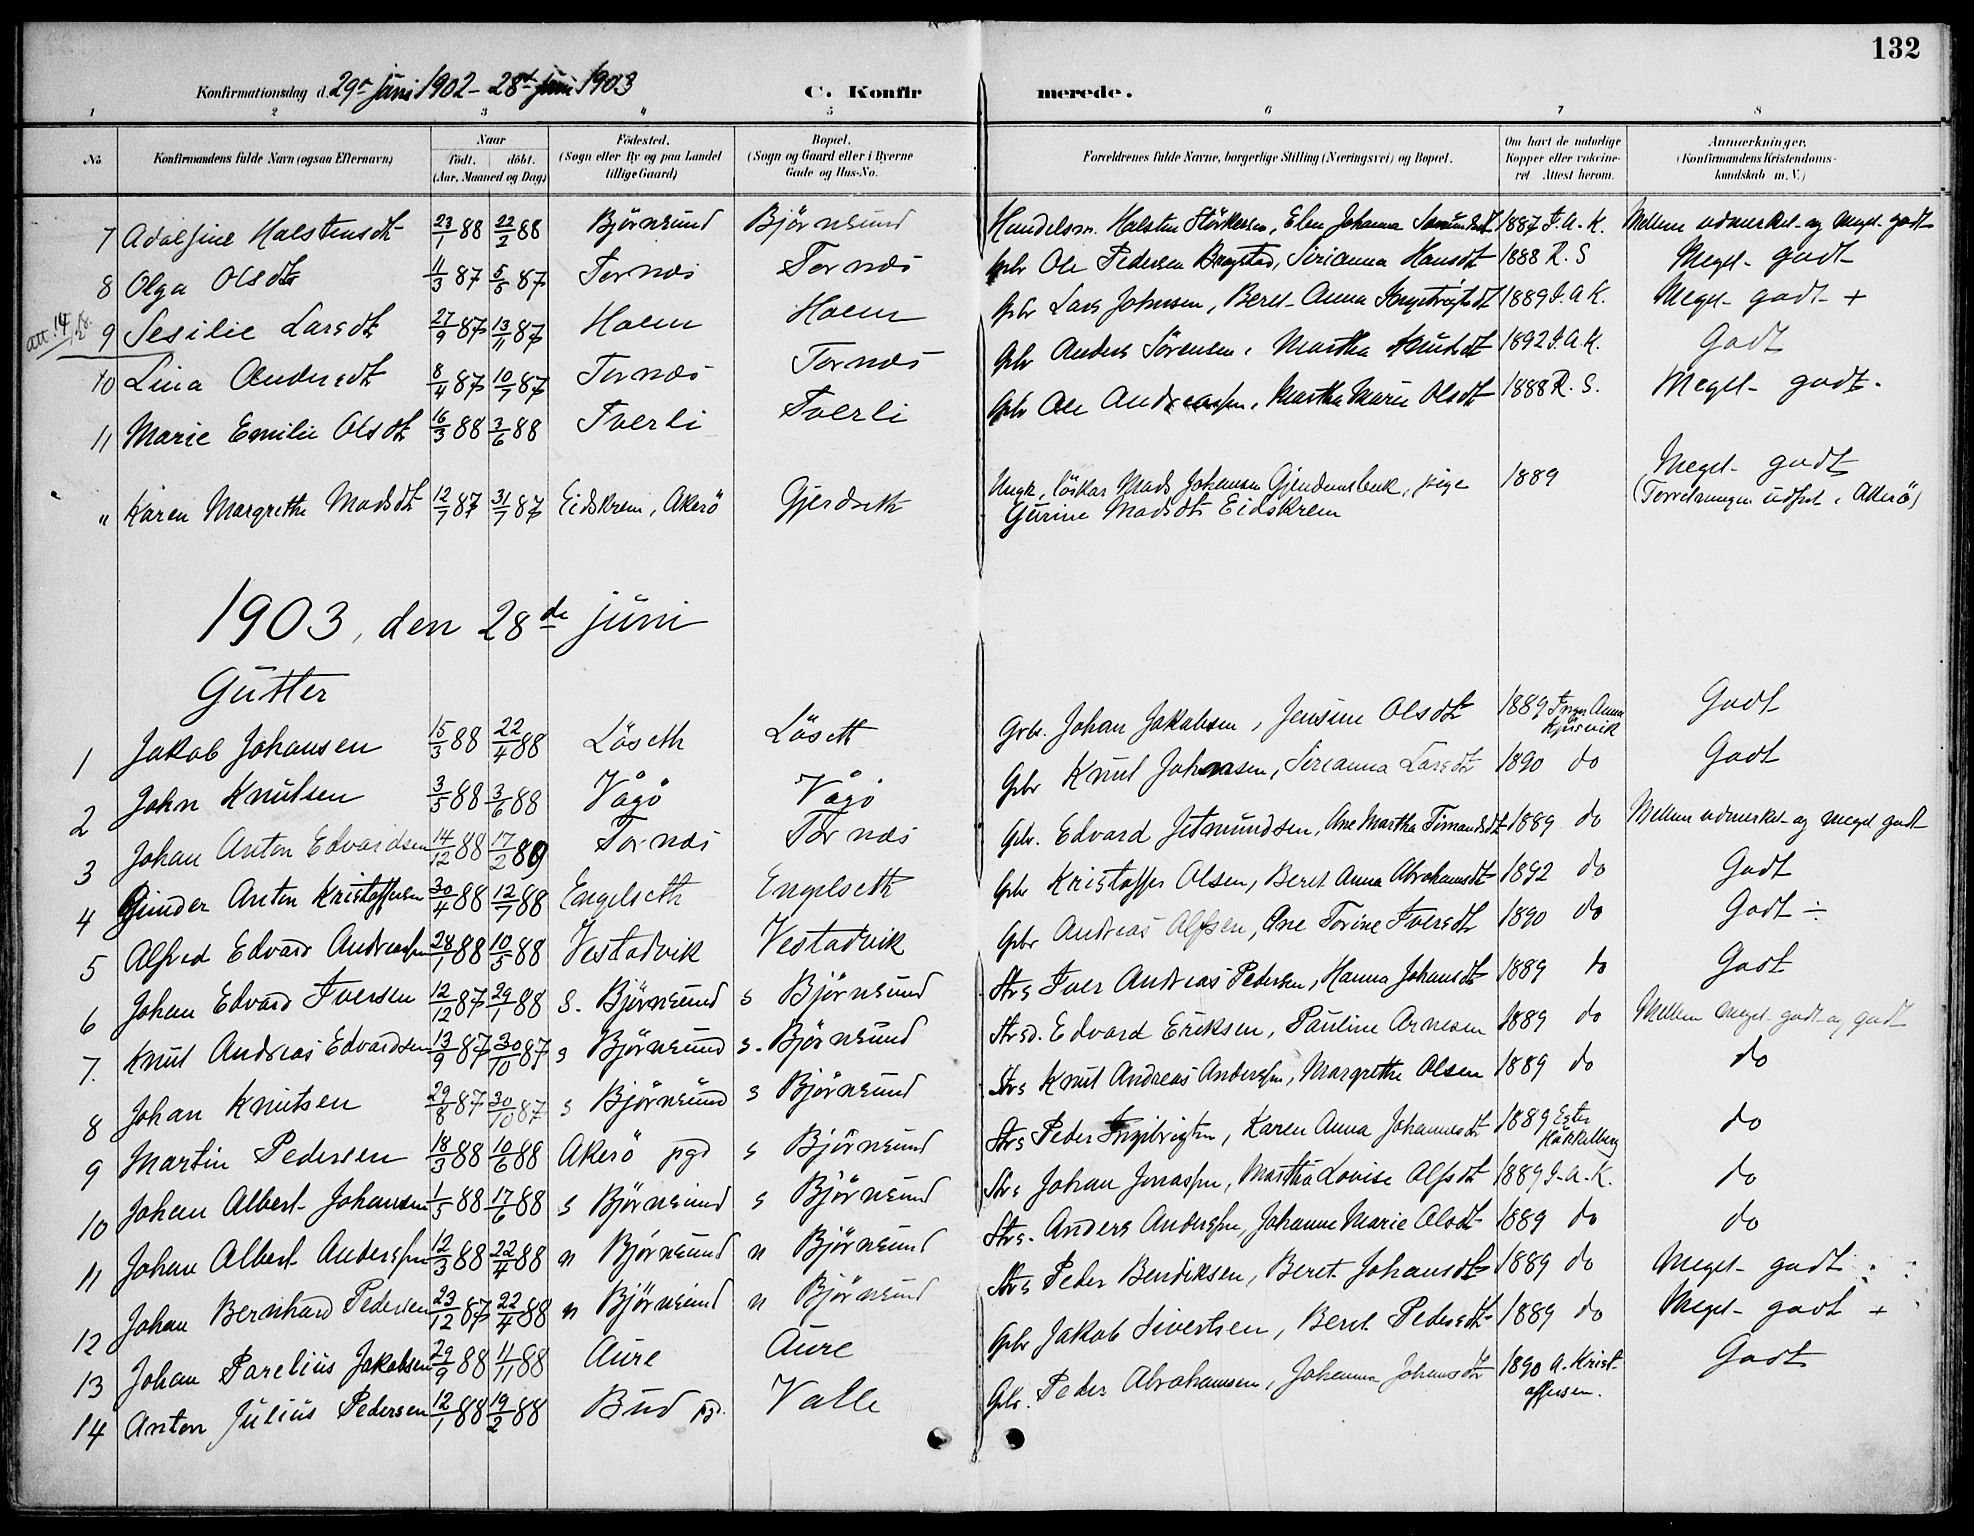 132
Konfirmationsdag d. 29de juni 1902 - 28de juni 1903 C. Konfirmerede.
1 2 3 4 5 6 7 8
No Konfirmandens fulde Navn (ogsaa Efternavn) Naar födt. döbt. (Aar, Maaned og Dag) Födested. (Sogn eller By og paa Landet tillige Gaard) Bopæl. (Sogn og Gaard eller i Byerne Gade og Hus-No. Forældrenes fulde Navne, borgerlige Stilling (Næringsvei) og Bopæl. Om havt de naturlige Kopper eller vaccineret. Attest herom. Anmærkninger. (Konfirmandens Kristendomskundskab m. V.)
7 Adolfine Halstensdt 23/1 88 22/2 88 Björnsund Björnsund Handelsm. Halsten Störkersen, Elen Johanna 1887 J. A. K. Mellem udmerket og meget godt
8 Olga Olsdtr 11/3 87 5/5 87 Tornæs Tornæs Gbr Ole Pedersen, Sirianna Hansdt 1888 R. S Meget godt
att. 14/ 9 Sesilie Larsdt 27/9 87 13/11 87 Hoem Hoem Gbr Lars Johnsen, Beret Anna 1889 J. A K. Meget godt +
10 Lina Andersdt 8/4 87 10/7 87 Tornæs Tornæs Gbr Anders Sörensen, Martha Knutsdt 1892 J. A. K. Godt
11 Marie Emilie Olsdt 16/3 88 3/6 88 Tverli Tverli Gbr Ole Andreassen, Martha Marie Olsdt 1888 R. S. Meget godt.
" Karen Margrethe Madsdt 12/7 87 31/7 87 Eidskrem, Akerö Gjerdseth Ungk, löskar Mads Johansen, pige Gurine Madsdt Eidskrem 1889 Meget godt (udfört i Akerö)
1903, den 28de juni
Gutter
1 Jakob Johansen 15/3 88 22/4 88 Löseth Löseth Gbr. Johan Jakobsen, Jensine Olsdt 1889 Godt
2 John Knutsen 3/5 88 3/6 88 Vågö Vågö Gbr Knut Johnsen, Sirianna Larsdt 1890 do Godt
3 Johan Anton Edvardsen 14/12 88 17/2 89 Tornæs Tornæs Gbr. Edvard Jetmundsen, Ane Martha 1889 do Mellem udmerket og meget godt
4 Gunder Anton Kristoffersen 30/4 88 12/7 88 Engelseth Engelseth Gbr Kristoffer Olsen, Beret Anna Abrahamsdt 1892 do Godt
5 Alfred Edvard Andreassen 28/1 88 10/5 88 Vestadvik Vestadvik Gbr Andreas Alfsen, Ane Torine Iversdt 1890 do Godt ÷
6 Johan Edvard Iversen 12/12 87 29/1 88 S. Björnsund s Björnsund Strs Iver Andreas Pedersen, Hanna Johansdt 1889 do Godt
7. Knut Andreas Edvardsen 13/9 87 30/10 87 s Björnsund s. Björnsund Strsd. Edvard Eriksen, Pauline Arnesen 1889 do Mellem meget godt og godt
8 Johan Knutsen 29/8 87 30/10 87 s Björnsund s Björnsund Strs Knut Andreas Anderssen, Margrethe Olsen 1889 do do
9 Martin Pedersen 18/3 88 10/6 88 Akerö pgd s Björnsund Strs Peder Ingebrigtsen, Karen Anna Johannesdt 1889 do
10 Johan Albert Johansen 1/5 88 17/6 88 s Björnsund s Björnsund Strs Johan Jonassen, Martha Lovise Alfsdt 1889 J. A. K. do
11 Johan Albert Anderssen 12/3 88 22/4 88 n Björnsund n Björnsund Strs. Anders Anderssen, Johanne Marie Olsdt 1889 do do
12 Johan Bernhard Pedersen 23/12 87 22/4 88 n Björnsund n Björnsund Strs Peder Bendiksen, Beret Johansdt 1889 do Meget godt
13 Johan Parelius Jakobsen 29/9 88 4/11 88 Aure Aure Gbr Jakob Sivertsen, Beret Pedersdt 1889 do Meget godt +
14 Anton Julius Pedersen 12/1 88 19/2 88 Bud pgd. Valle Gbr. Peder Abrahamsen, Johanna Johansdt 1890 A. Kristoffersen. Godt